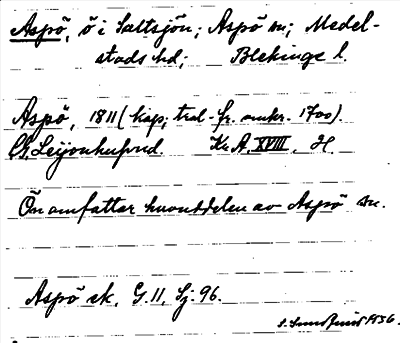 Aspö, ö i Saltsjön; Aspö sn; Medel-
stads hd; Blekinge l.
Aspö, 1811 (kop; tral. fr. omkr. 1700).
C.G. Leijonhufvud Kr. A. XVIII. H.
Ön omfattar huvuddelen av Aspö sn.
Aspö sk. G. 11, Sj. 96.
1936.